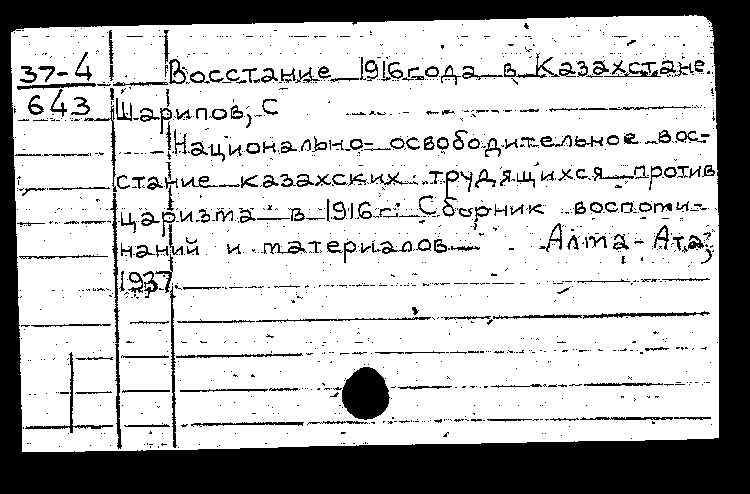 37-4 Восстание 1916 года в Казахстане.
643 Шарипов, С
Национально-освободительное вос-
стание казахских трудящихся против
царизма в 1916 г. Сборник воспоми-
наний и материалов Алма-Ата,
1937